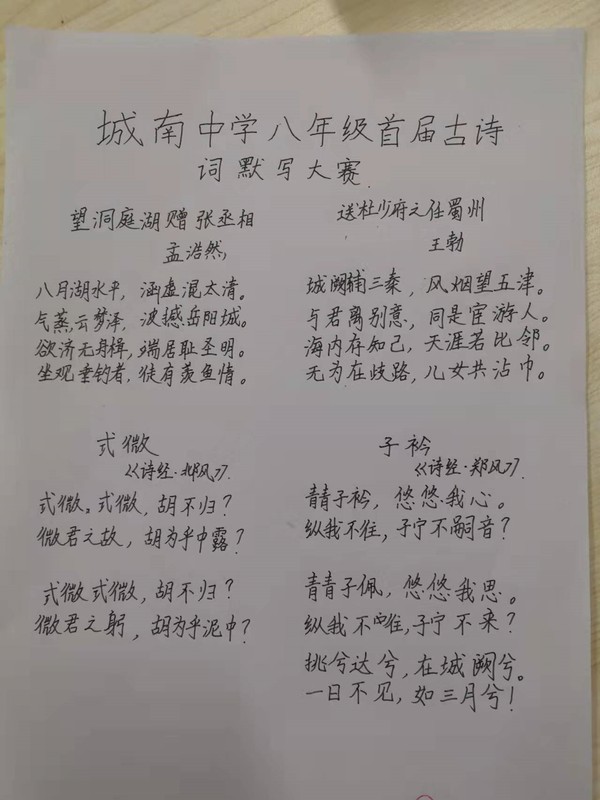 城南中学八年级首届古诗
词默写大赛
望洞庭湖赠张丞相
孟浩然
八月湖水平，涵虚混太清。
气蒸云梦泽，波撼岳阳城。
欲济无舟楫，端居耻圣明。
坐观垂钓者，徒有羡鱼情。
送杜少府之任蜀州
王勃
城阙辅三秦，风烟望五津。
与君离别意，同是宦游人。
海内存知己，天涯若比邻。
无为在歧路，儿女共沾巾。
式微
《诗经·邶风》
式微。式微，胡不归？
微君之故，胡为乎中露？
式微式微，胡不归？
微君之躬，胡为乎泥中？
子衿
《诗经·郑风》
青青子衿，悠悠我心。
纵我不住，子宁不嗣音？
青青子佩，悠悠我思。
纵我不，子宁不来？
挑兮达兮，在城阙兮。
一日不见，如三月兮！